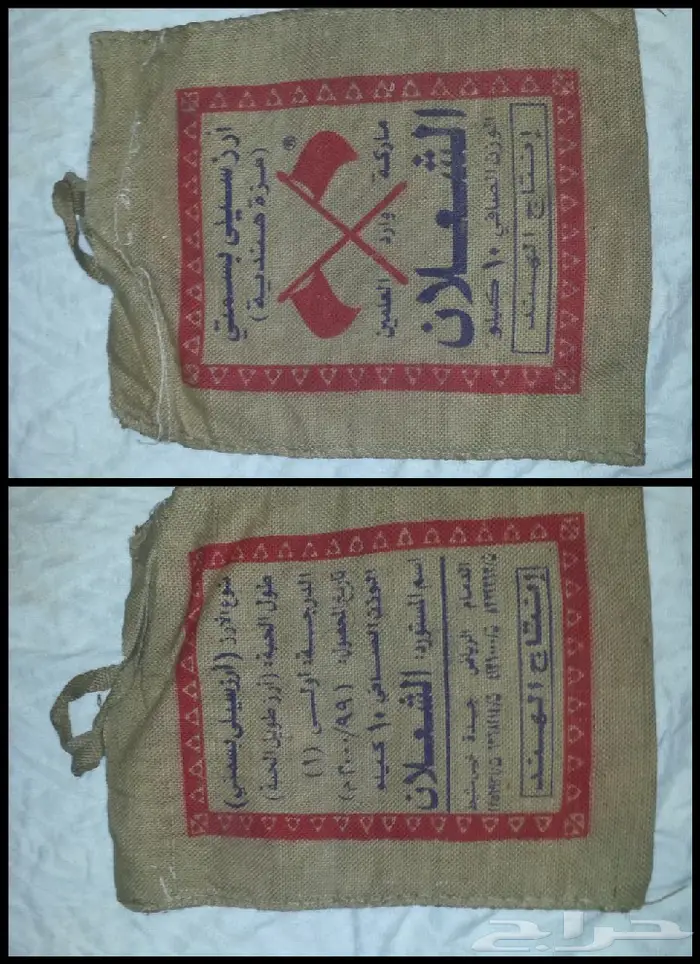 أرز سيلي بسمتي
(مزة هندية)
®
ماركة
وارد
العلمين
الشعلان
الوزن الصافي ١٠ كيلو
إنتاج الهند
نوع الأرز (أرز سيلي بسمتي)
طول الحبة: (أرز طويل الحبة)
الدرجة: اولى (١)
تاريخ المحصول: (٢٠٠٠/٩٩م)
الوزن الصافي ١٠ كيلو
اسم المستورد: الشعلان
الدمام الرياض جدة خميس مشيط
إنتاج الهند
حراج